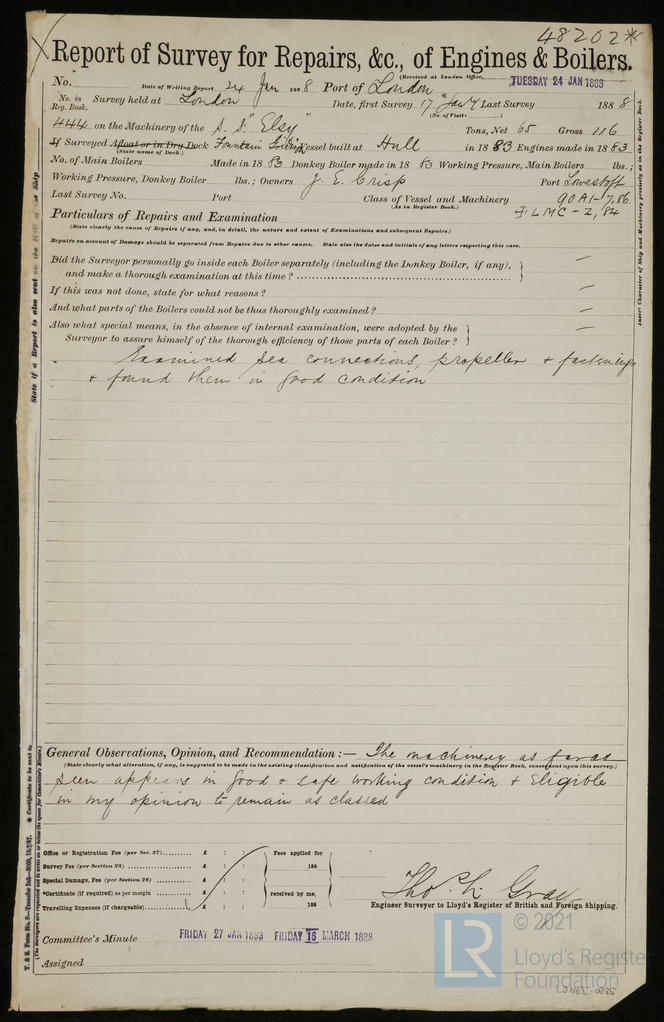 48202*
Report of Survey for Repairs, &c., of Engines & Boilers.
(Received at London Office,
No. Date of Writing Report 24 Jan 1888 Port of London TUESDAY 24 JAN 1888
No. in Reg. Book. Survey held at London Date, first Survey 17 Jany Last Survey 1888
(No. of Visits )
444 on the Machinery of the S. S. "Elsy" Tons, Net 65 Gross 116
If Surveyed Afloat or in Dry Dock Fountain Vessel built at Hull in 1883 Engines made in 1883
(State name of Dock.)
No. of Main Boilers Made in 1883 Donkey Boiler made in 1883 Working Pressure, Main Boilers lbs.;
Working Pressure, Donkey Boiler lbs.; Owners J. E. Crisp Port Lowestoft
Last Survey No. Port Class of Vessel and Machinery 90A1-7,86
(As in Register Book.) LMC-2,84
Particulars of Repairs and Examination
(State clearly the cause of Repairs if any, and, in detail, the nature and extent of Examinations and subsequent Repairs.)
Repairs on account of Damage should be separated from Repairs due to other causes. State also the dates and initials of any letters respecting this case.
Did the Surveyor personally go inside each Boiler separately (including the Donkey Boiler, if any), —
and make a thorough examination at this time ?
If this was not done, state for what reasons ? —
And what parts of the Boilers could not be thus thoroughly examined ? —
Also what special means, in the absence of internal examination, were adopted by the —
Surveyor to assure himself of the thorough efficiency of those parts of each Boiler ?
Examined sea connections, propeller & fastenings
& found them in good condition
General Observations, Opinion, and Recommendation :— The machinery as far as
(State clearly what alteration, if any, is suggested to be made in the existing classification and notification of the vessel's machinery in the Register Book, consequent upon this survey.)
seen appears in good & safe working condition & Eligible
in my opinion to remain as classed
Office or Registration Fee (per Sec. 27) £ : : Fees applied for
Survey Fee (per Section 28) £ : : 188
Special Damage, Fee (per Section 28) £ : :
*Certificate (if required) as per margin £ : : received by me,
Travelling Expenses (if chargeable) £ : : 188
Thos. Gray
Engineer Surveyor to Lloyd's Register of British and Foreign Shipping.
Committee's Minute FRIDAY 27 JAN 1888 FRIDAY 16 MARCH 1888
Assigned
State if a Report is also sent on the Hull of the Ship
* Certificate to be sent to
(The Surveyors are requested not to write on or below the space for Committee's Minute.)
Insert Character of Ship and Machinery precisely as in the Register Book.
LR
© 2021
Lloyd's Register
Foundation